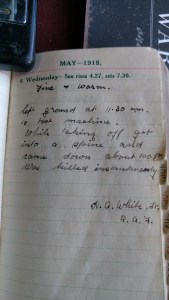 MAY—1918.
8 Wednesday—Sun rises 4.27, sets 7.30.
Fine & warm.
Left ground at 11.30 am.
to test machine.
While taking off got
into a spin and
came down about 100ft
Was killed instantaneously
A. A. White Lt.
R. A. F.